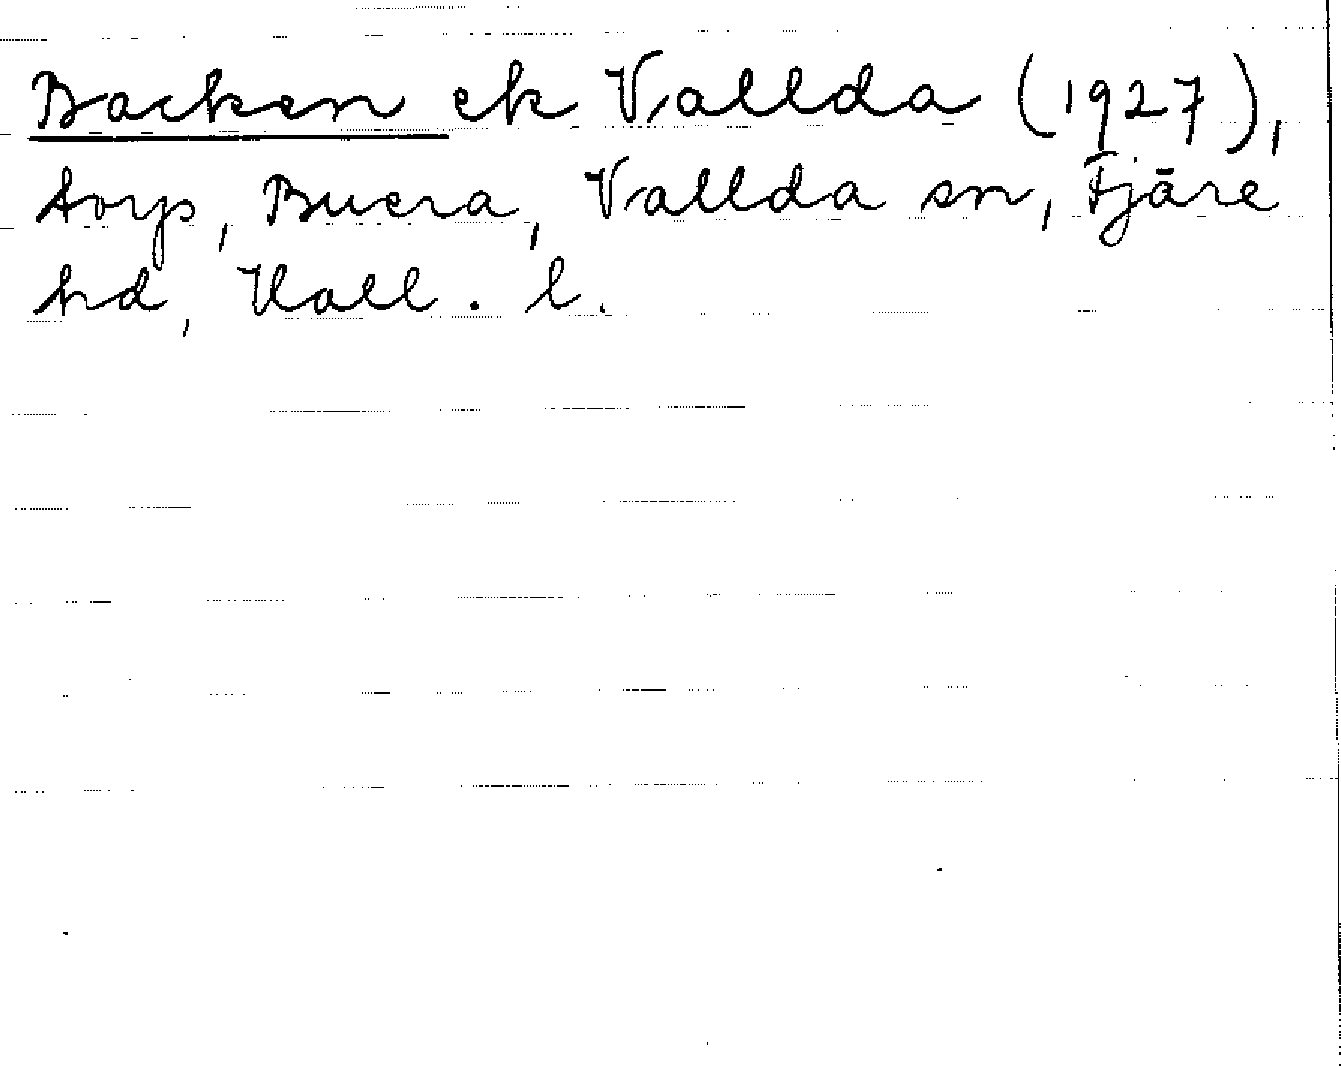 Backen ek Vallda (1927),
torp, Buera, Vallda sn, Fjäre
hd, Hall. l.